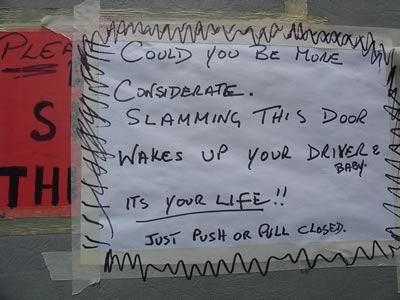 PLEA
S
TH
COULD YOU BE MORE
CONSIDERATE.
SLAMMING THIS DOOR
WAKES UP YOUR DRIVER &
BABY.
ITS YOUR LIFE!!
JUST PUSH OR PULL CLOSED.